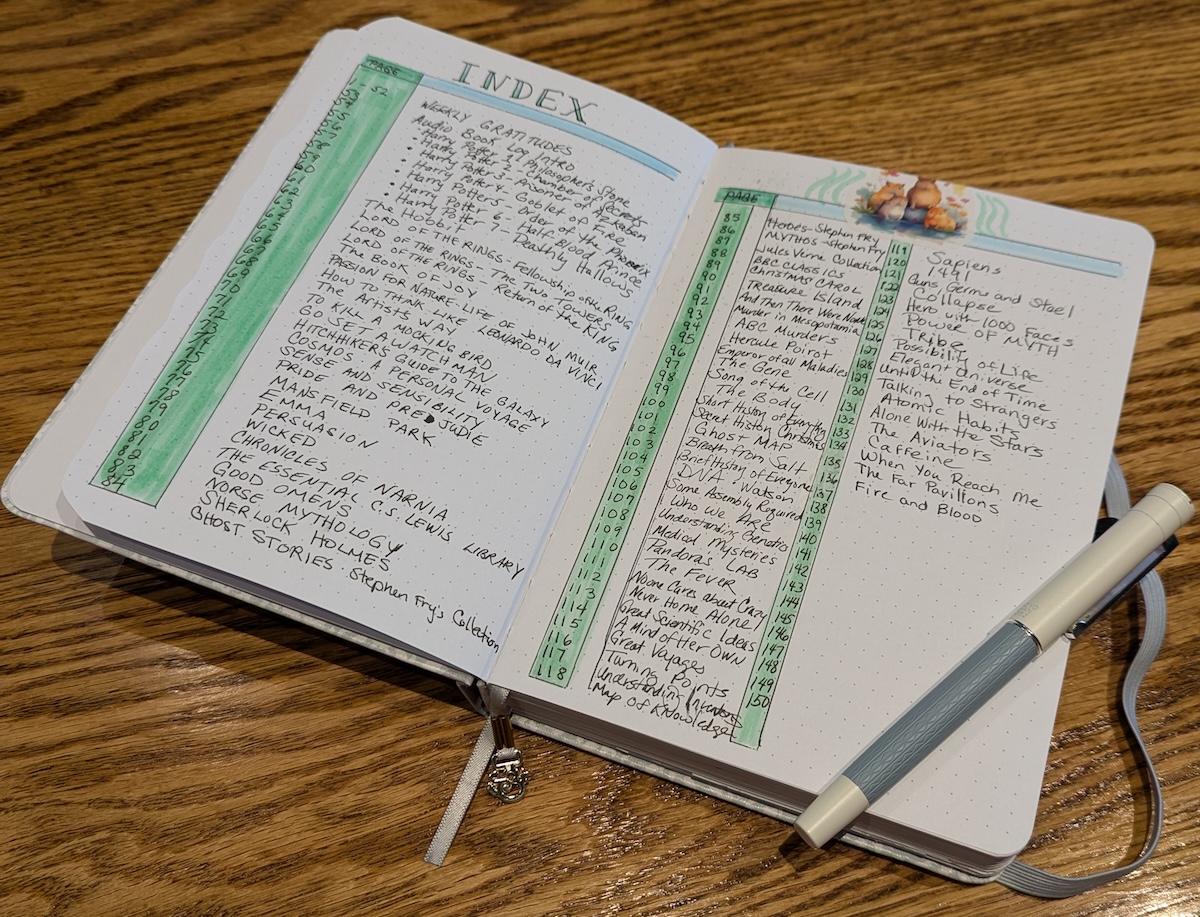 INDEX
PAGE
1 - 52 WEEKLY GRATITUDES
53 Audio Book Log Intro
54 • Harry Potter 1: Philosophers Stone
55 • Harry Potter 2 - Chamber of Secrets
56 • Harry Potter 3 - Prisoner of Azkaban
57 • Harry Potter 4 - Goblet of Fire
58 • Harry Potter 5 - Order of the Phoenix
59 • Harry Potter 6 - Half Blood Prince
60 • Harry Potter - 7 - Deathly Hallows
61 The Hobbit
62 LORD OF THE RINGS - Fellowship of the RING
63 LORD OF THE RINGS - The Two TOWERS
64 LORD OF THE RINGS - Return of the KING
65 The BOOK OF JOY
66 PASSION FOR NATURE, LIFE OF JOHN MUIR
67 HOW TO THINK LIKE LEONARDO DA VINCI
68 The Artists WAY
69 TO KILL A MOCKING BIRD
70 GO SET A WATCH MAN
71 HITCHHIKERS GUIDE TO THE GALAXY
72 COSMOS A PERSONAL VOYAGE
73 SENSE AND SENSIBILITY
74 PRIDE AND PREDJUDIE
75 MANSFIELD PARK
76 EMMA
77 PERSUASION
78 WICKED
79 CHRONICLES OF NARNIA
80 THE ESSENTIAL C.S. LEWIS LIBRARY
81 GOOD OMENS
82 NORSE MYTHOLOGY
83 SHERLOCK HOLMES
84 GHOST STORIES Stephen Fry's Collection
PAGE
85 Heroes - Stephen Fry
86 MYTHOS - Stephen Fry
87 Jules Verne Collection
88 BBC CLASSICS
89 CHRISTMAS CAROL
90 TREASURE ISLAND
91 And Then There Were None
92 Murder in Mesopotamia
93 ABC Murders
94 Hercule Poirot
95 Emperor of all Maladies
96 The Gene
97 Song of the Cell
98 The Body
99 Short History of Everything
100 Secret History Christmas
101 GHOST MAP
102 Breath from Salt
103 Brief History of Everyone
104 DNA Watson
105 Some Assembly Required
106 Who We ARE
107 Understanding Genetics
108 Medical Mysteries
109 Pandora's LAB
110 The FEVER
111 Noone Cares about Crazy
112 Never Home Alone
113 Great Scientific Ideas
114 A Mind of Her OWN
115 Great Voyages
116 Turning Points
117 Understanding Inventions
118 Map of Knowledge
119 Sapiens
120 1491
121 Guns Germs and Steel
122 Collapse
123 Hero with 1000 Faces
124 Power of MYTH
125 Tribe
126 Possibility of Life
127 Elegant Universe
128 Until the End of Time
129 Talking to Strangers
130 Atomic Habits
131 Alone With the Stars
132 The Aviators
133 Caffeine
134 When You Reach Me
135 The Far Pavilions
136 Fire and Blood
137
138
139
140
141
142
143
144
145
146
147
148
149
150